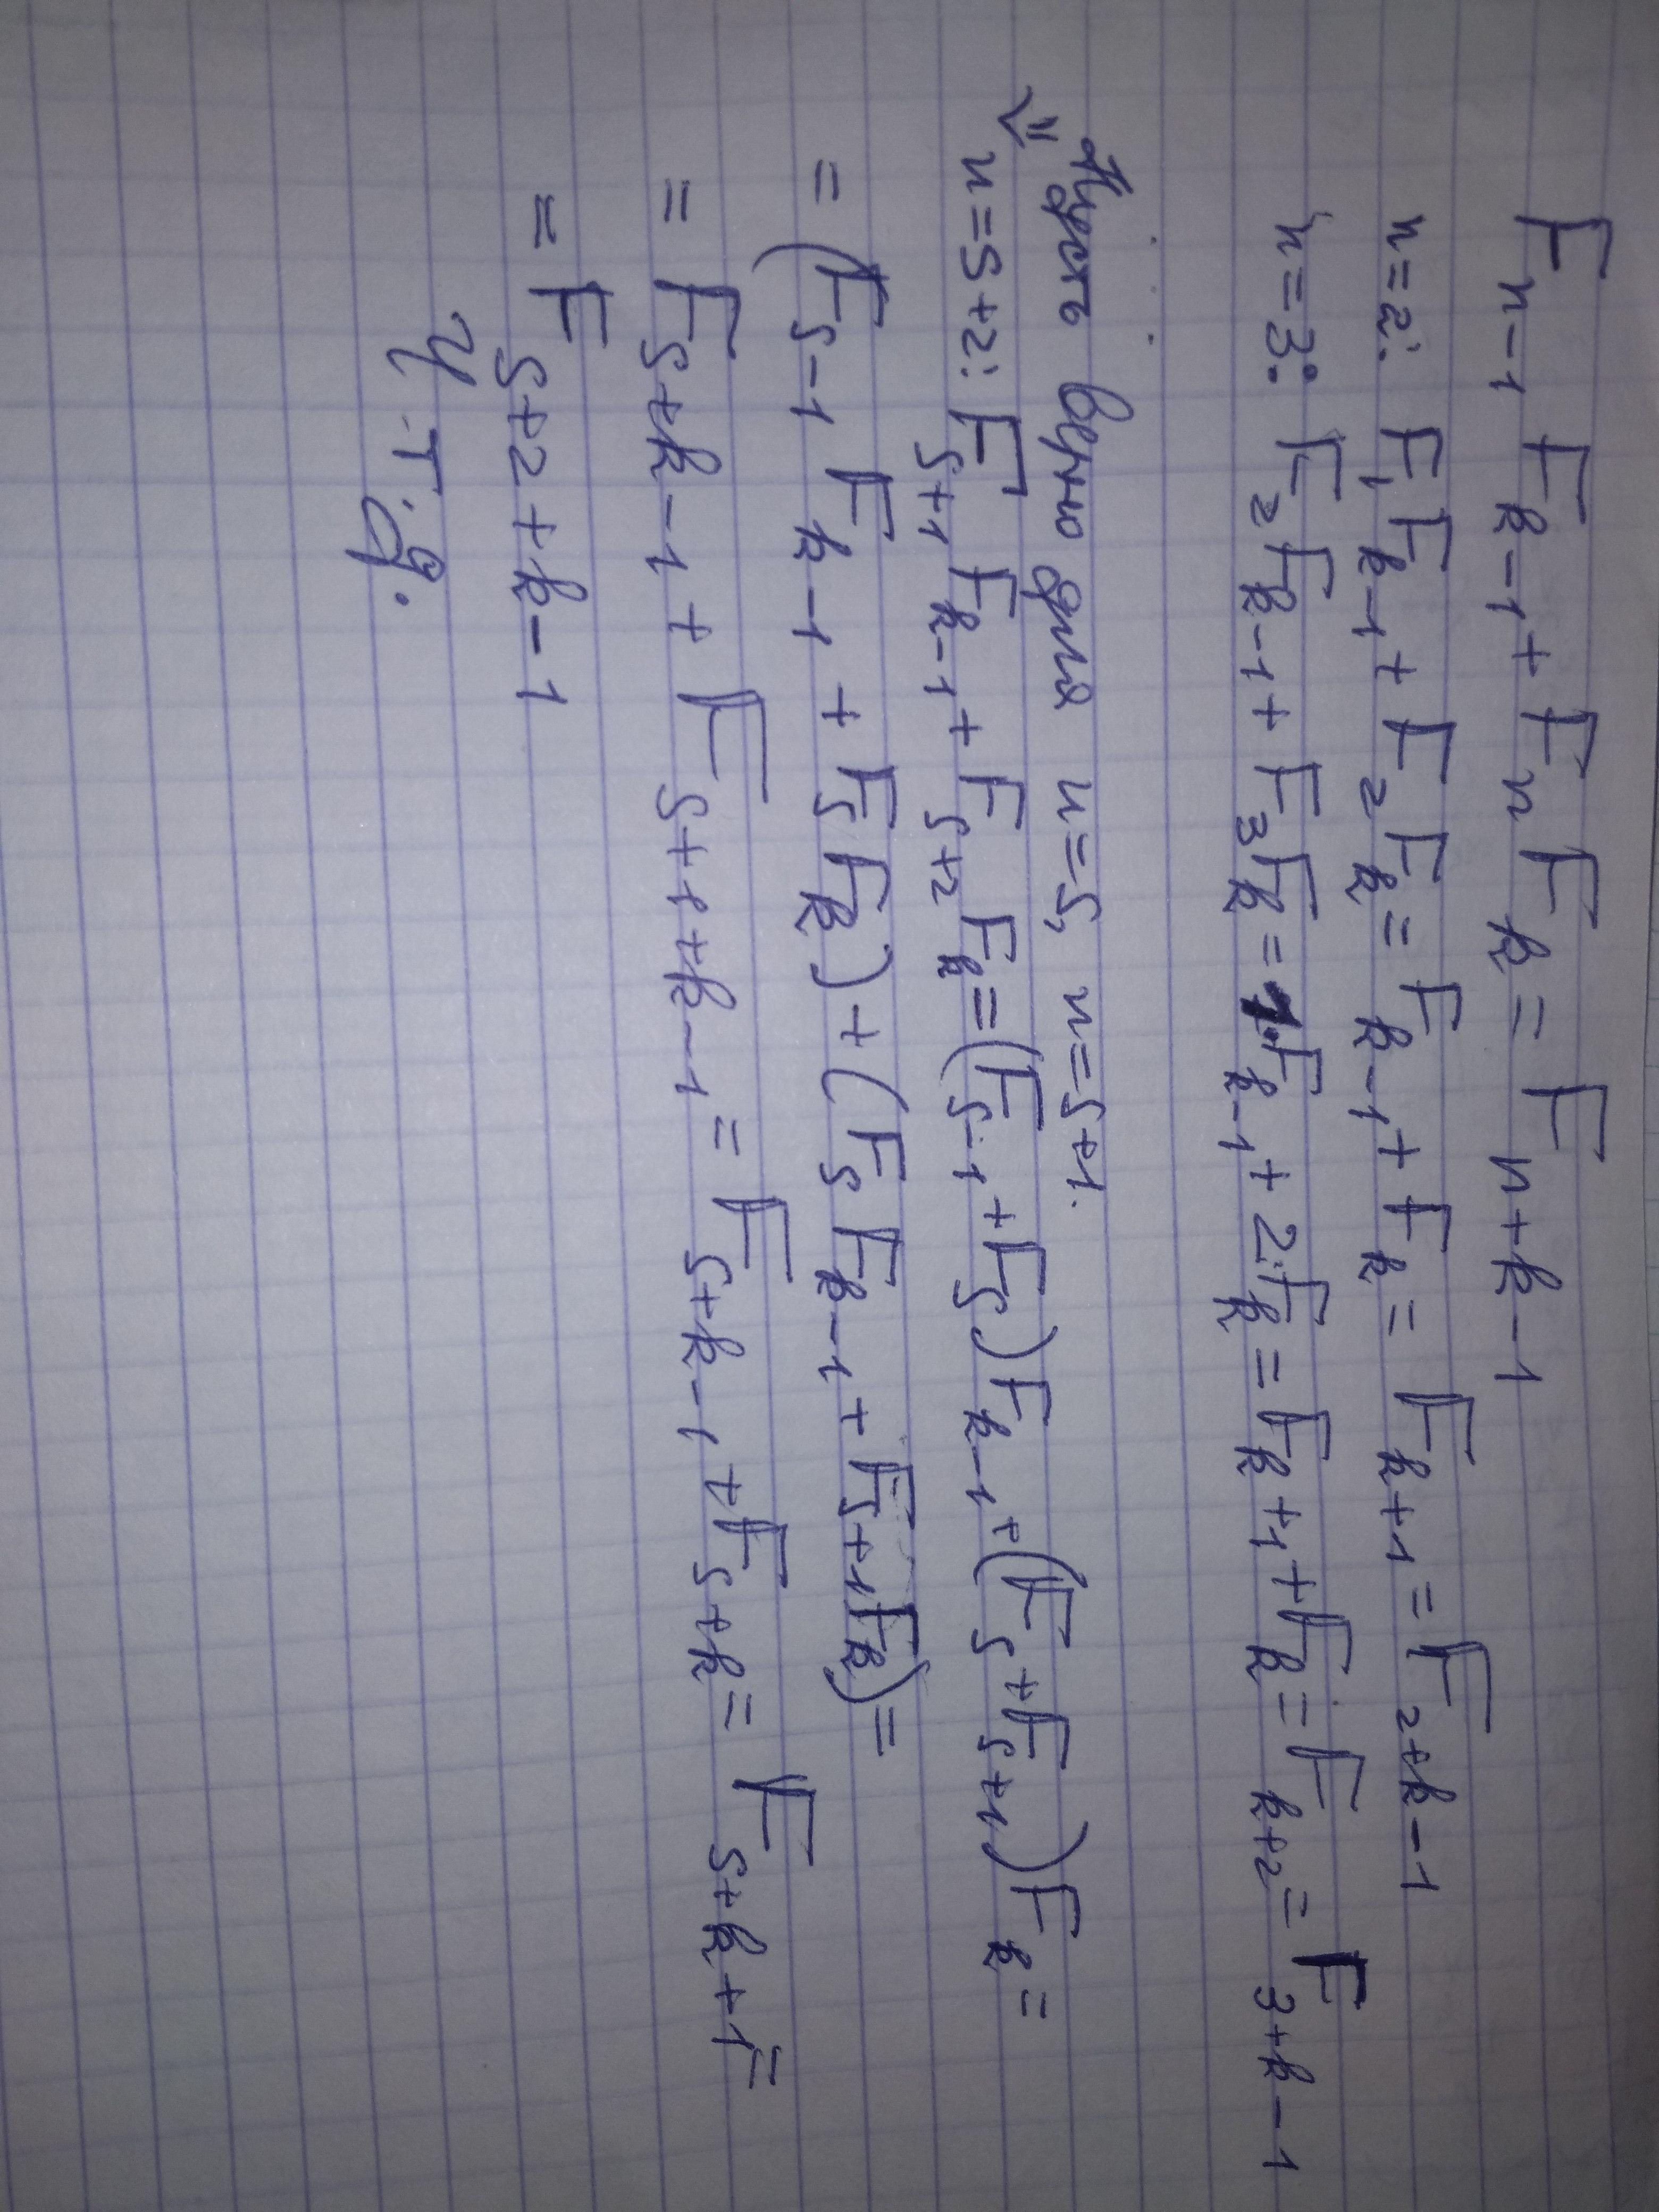 F n-1 F k-1 + F n F k = F n+k-1
n=2: F₁F k-1 + F₂F k = F k-1 + F k = F k+1 = F 2+k-1
n=3: F₂F k-1 + F₃F k = 1·F k-1 + 2·F k = F k+1 + F k = F k+2 = F 3+k-1
Пусть верно для n=s, n=s+1.
⇒ n=s+2: F s+1 F k-1 + F s+2 F k = (F s-1 + F s) F k-1 + (F s + F s+1) F k =
= (F s-1 F k-1 + F s F k) + (F s F k-1 + F s+1 F k) =
= F s+k-1 + F s+1+k-1 = F s+k-1 + F s+k = F s+k+1 =
= F s+2+k-1
Ч.Т.д.